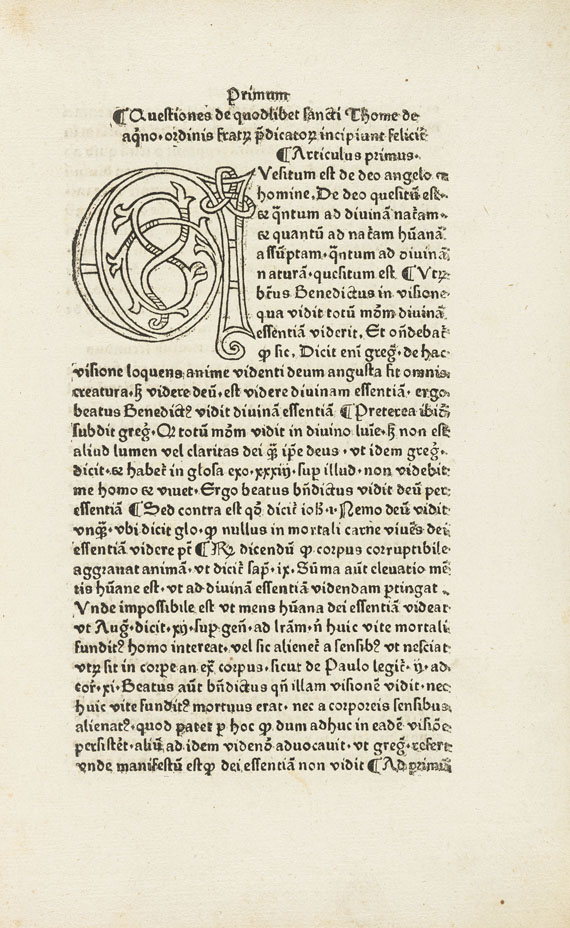 Primum
¶Questiones de quodlibet sancti Thome de
aq̄no·ordinis fratꝝ p̄dicatoꝝ incipiunt felicit̄
¶Articulus primus·
QVesitum est de deo angelo ⁊
homine. De deo quesitū est·
⁊ q̄ntum ad divinā nat̄am·
⁊ quantū ad nat̄am hūanā
assūptam·q̄ntum ad divinā
naturā·quesitum est ¶Vtꝝ
bt̄us Benedictus in visione
qua vidit totū mōm divinā
essentiā viderit. Et oñdebat̄
ꝙ sic. Dicit eni greḡ·de hac
visione loquens anime videnti deum angusta fit omnis
creatura·ꝫ videre deū·est videre divinam essentiā· ergo
beatus Benedictꝰ vidit divinā essentiā ¶Preterea ibidē
subdit greḡ·Qꝫ totū mōm vidit in divino luīe·ꝫ non est
aliud lumen vel claritas dei q̄ꝫ ip̄e deus · vt idem greḡ·
dicit·⁊ habet̄ in glosa exo·xxxiij·sup illud·non videbit
me homo ⁊ vivet· Ergo beatus bn̄dictus vidit deū per
essentiā ¶Sed contra est qꝫ dicit̄ ioh̄·1·Nemo deū vidit
vnq̄ꝫ·vbi dicit glo·ꝙ nullus in mortali carne vivēs dei
essentiā videre pt̄ ¶Rꝫ dicendū ꝙ corpus corruptibile
aggranat animā·vt dicit̄ sap̄·ix·Sūma aūt elevatio mē
tis hūane est·vt ad divinā essentiā videndam ꝑtingat
Vnde impossibile est vt mens hūana dei essentiā videat
vt Aug̃·dicit·xij·sup gen̄·ad lr̄am·n̄ huic vite mortali
funditꝰ homo intereat·vel sic alienet̄ a sensibꝰ vt nesciat
vtꝝ sit in corpe an ex̄ corpus·sicut de Paulo legit̄·ij·ad
cor̄·xi·Beatus aūt bn̄dictus qn̄ illam visionē vidit·nec
huic vite funditꝰ mortuus erat· nec a corporeis sensibus
alienatꝰ·quod patet ꝑ hoc ꝙ dum adhuc in eadē visiōe
persistēt·aliū ad idem videnō advocauit·vt greḡ·refert
vnde manifestū est ꝙ dei essentiā non vidit ¶Ad primū